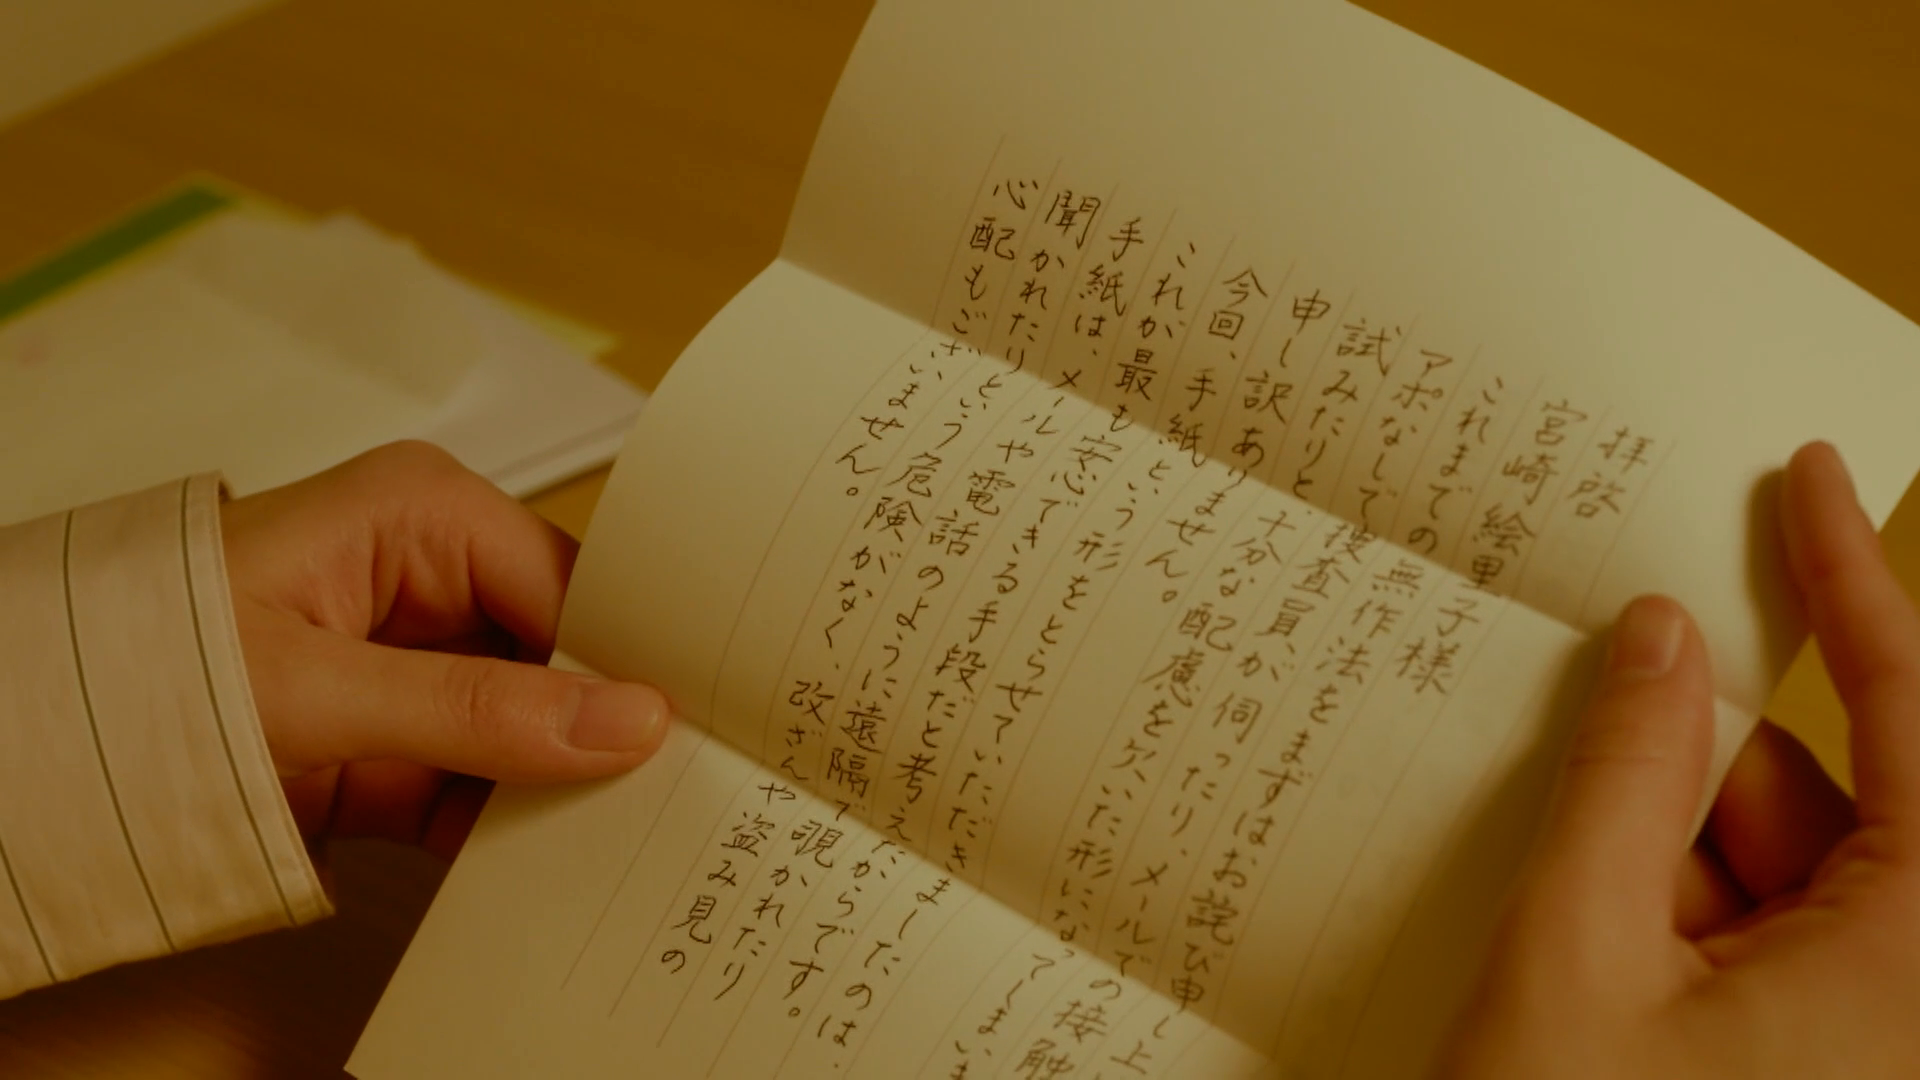 拝啓
宮崎絵里子様
これまでの無作法をまずはお詫び申し上
アポなしで捜査員が伺ったり、メールでの接触
試みたりと、十分な配慮を欠いた形になってしまいま
申し訳ありません。
今回、手紙という形をとらせていただきましたのは、
これが最も安心できる手段だと考えたからです。
手紙は、メールや電話のように遠隔で覗かれたり
聞かれたりという危険がなく、改ざんや盗み見の
心配もございません。